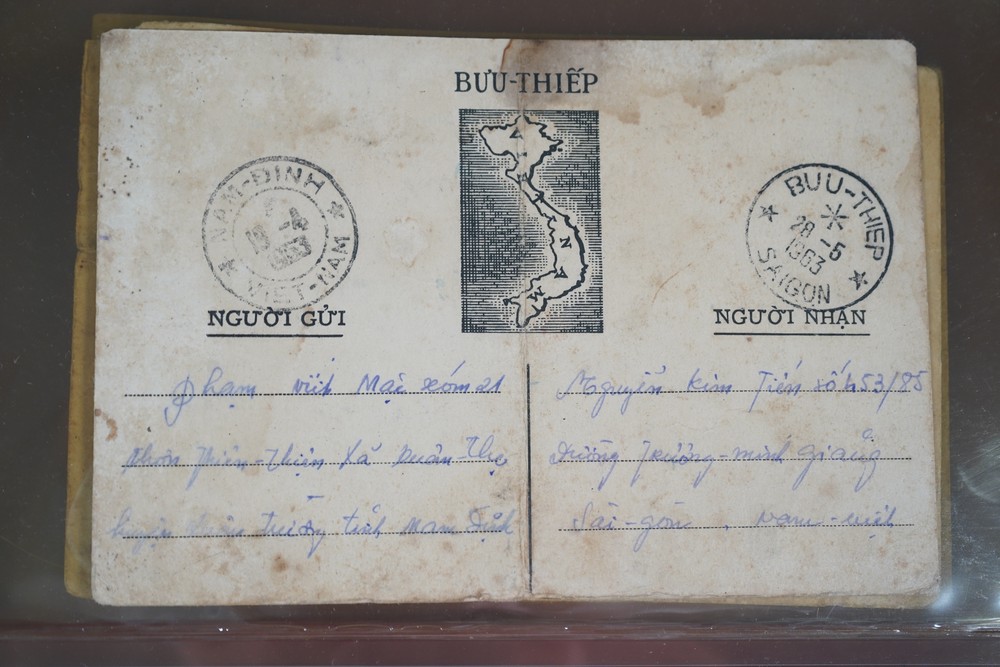 BƯU-THIẾP
NAM-ĐỊNH
1963
VIỆT-NAM
BUU-THIEP
28-5
1963
SAIGON
VIỆT NAM
NGƯỜI GỬI
NGƯỜI NHẬN
Phạm viết Mại xóm 21
Thiện xã Xuân-thọ
trường tỉnh nam Định
Nguyễn Kim Tiến số 453/85
Đường Trương-minh giảng
Sài-gòn . nam-việt